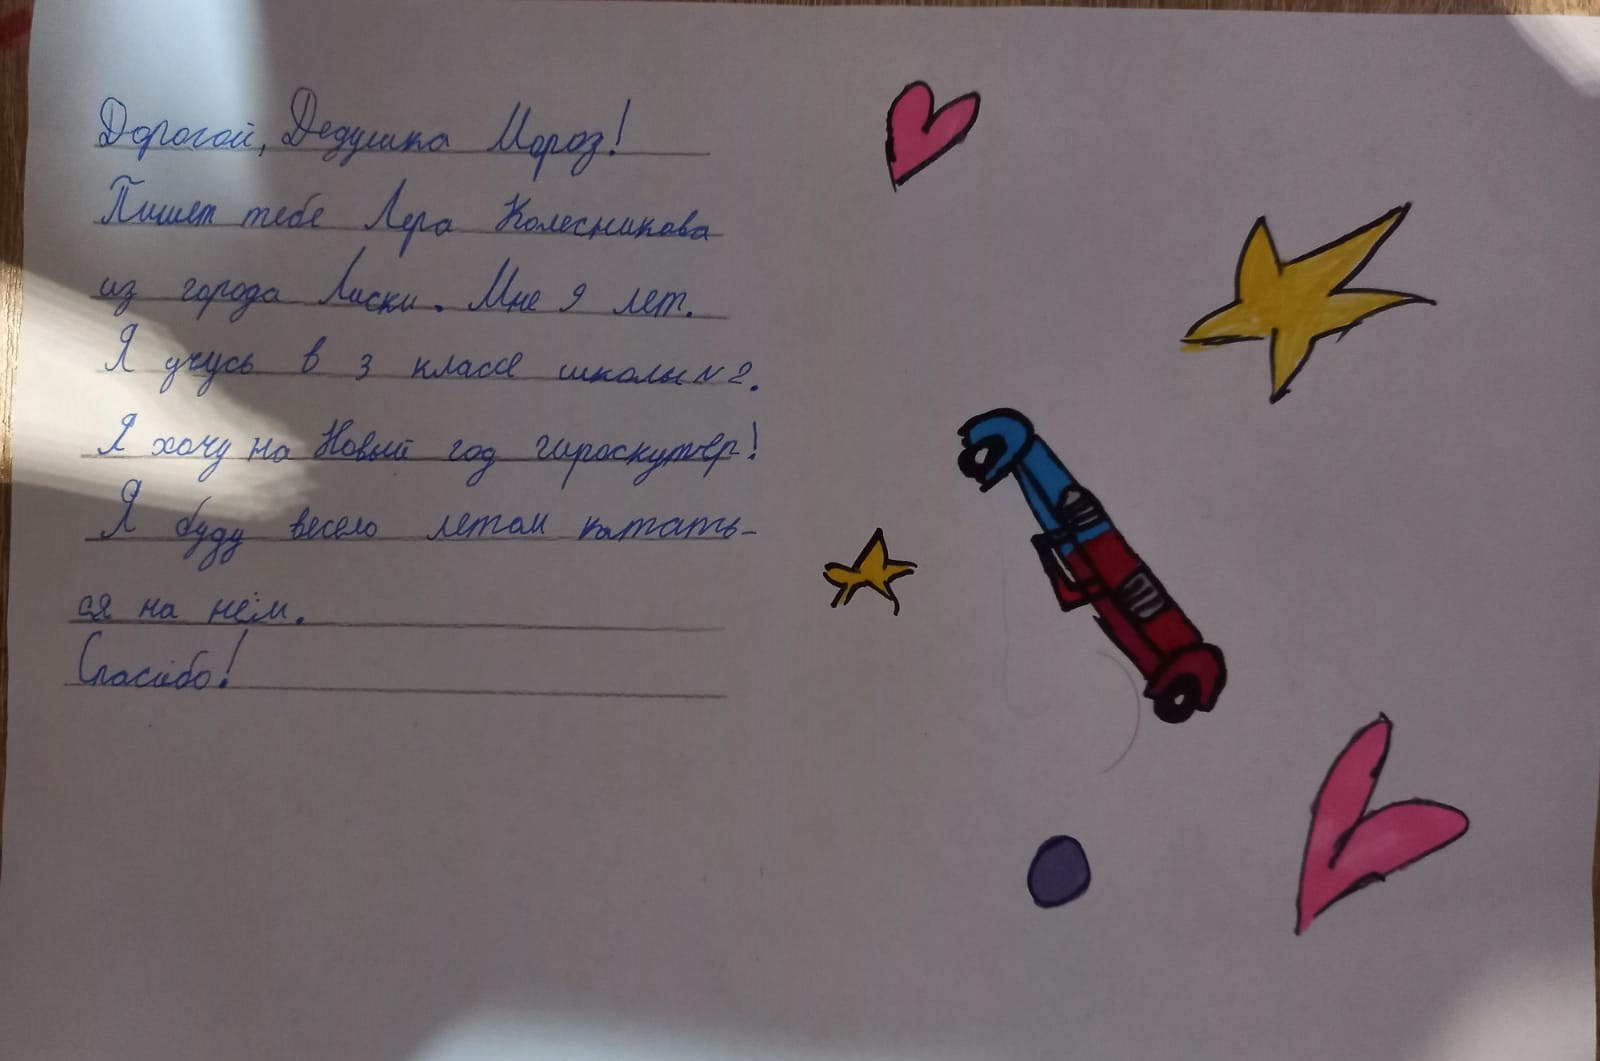 Дорогой, Дедушка Мороз!
Пишет тебе Лера Колесникова
из города Лиски. Мне 9 лет.
Я учусь в 3 классе школы №2.
Я хочу на Новый год гироскутер!
Я буду весело летом катать-
ся на нём.
Спасибо!